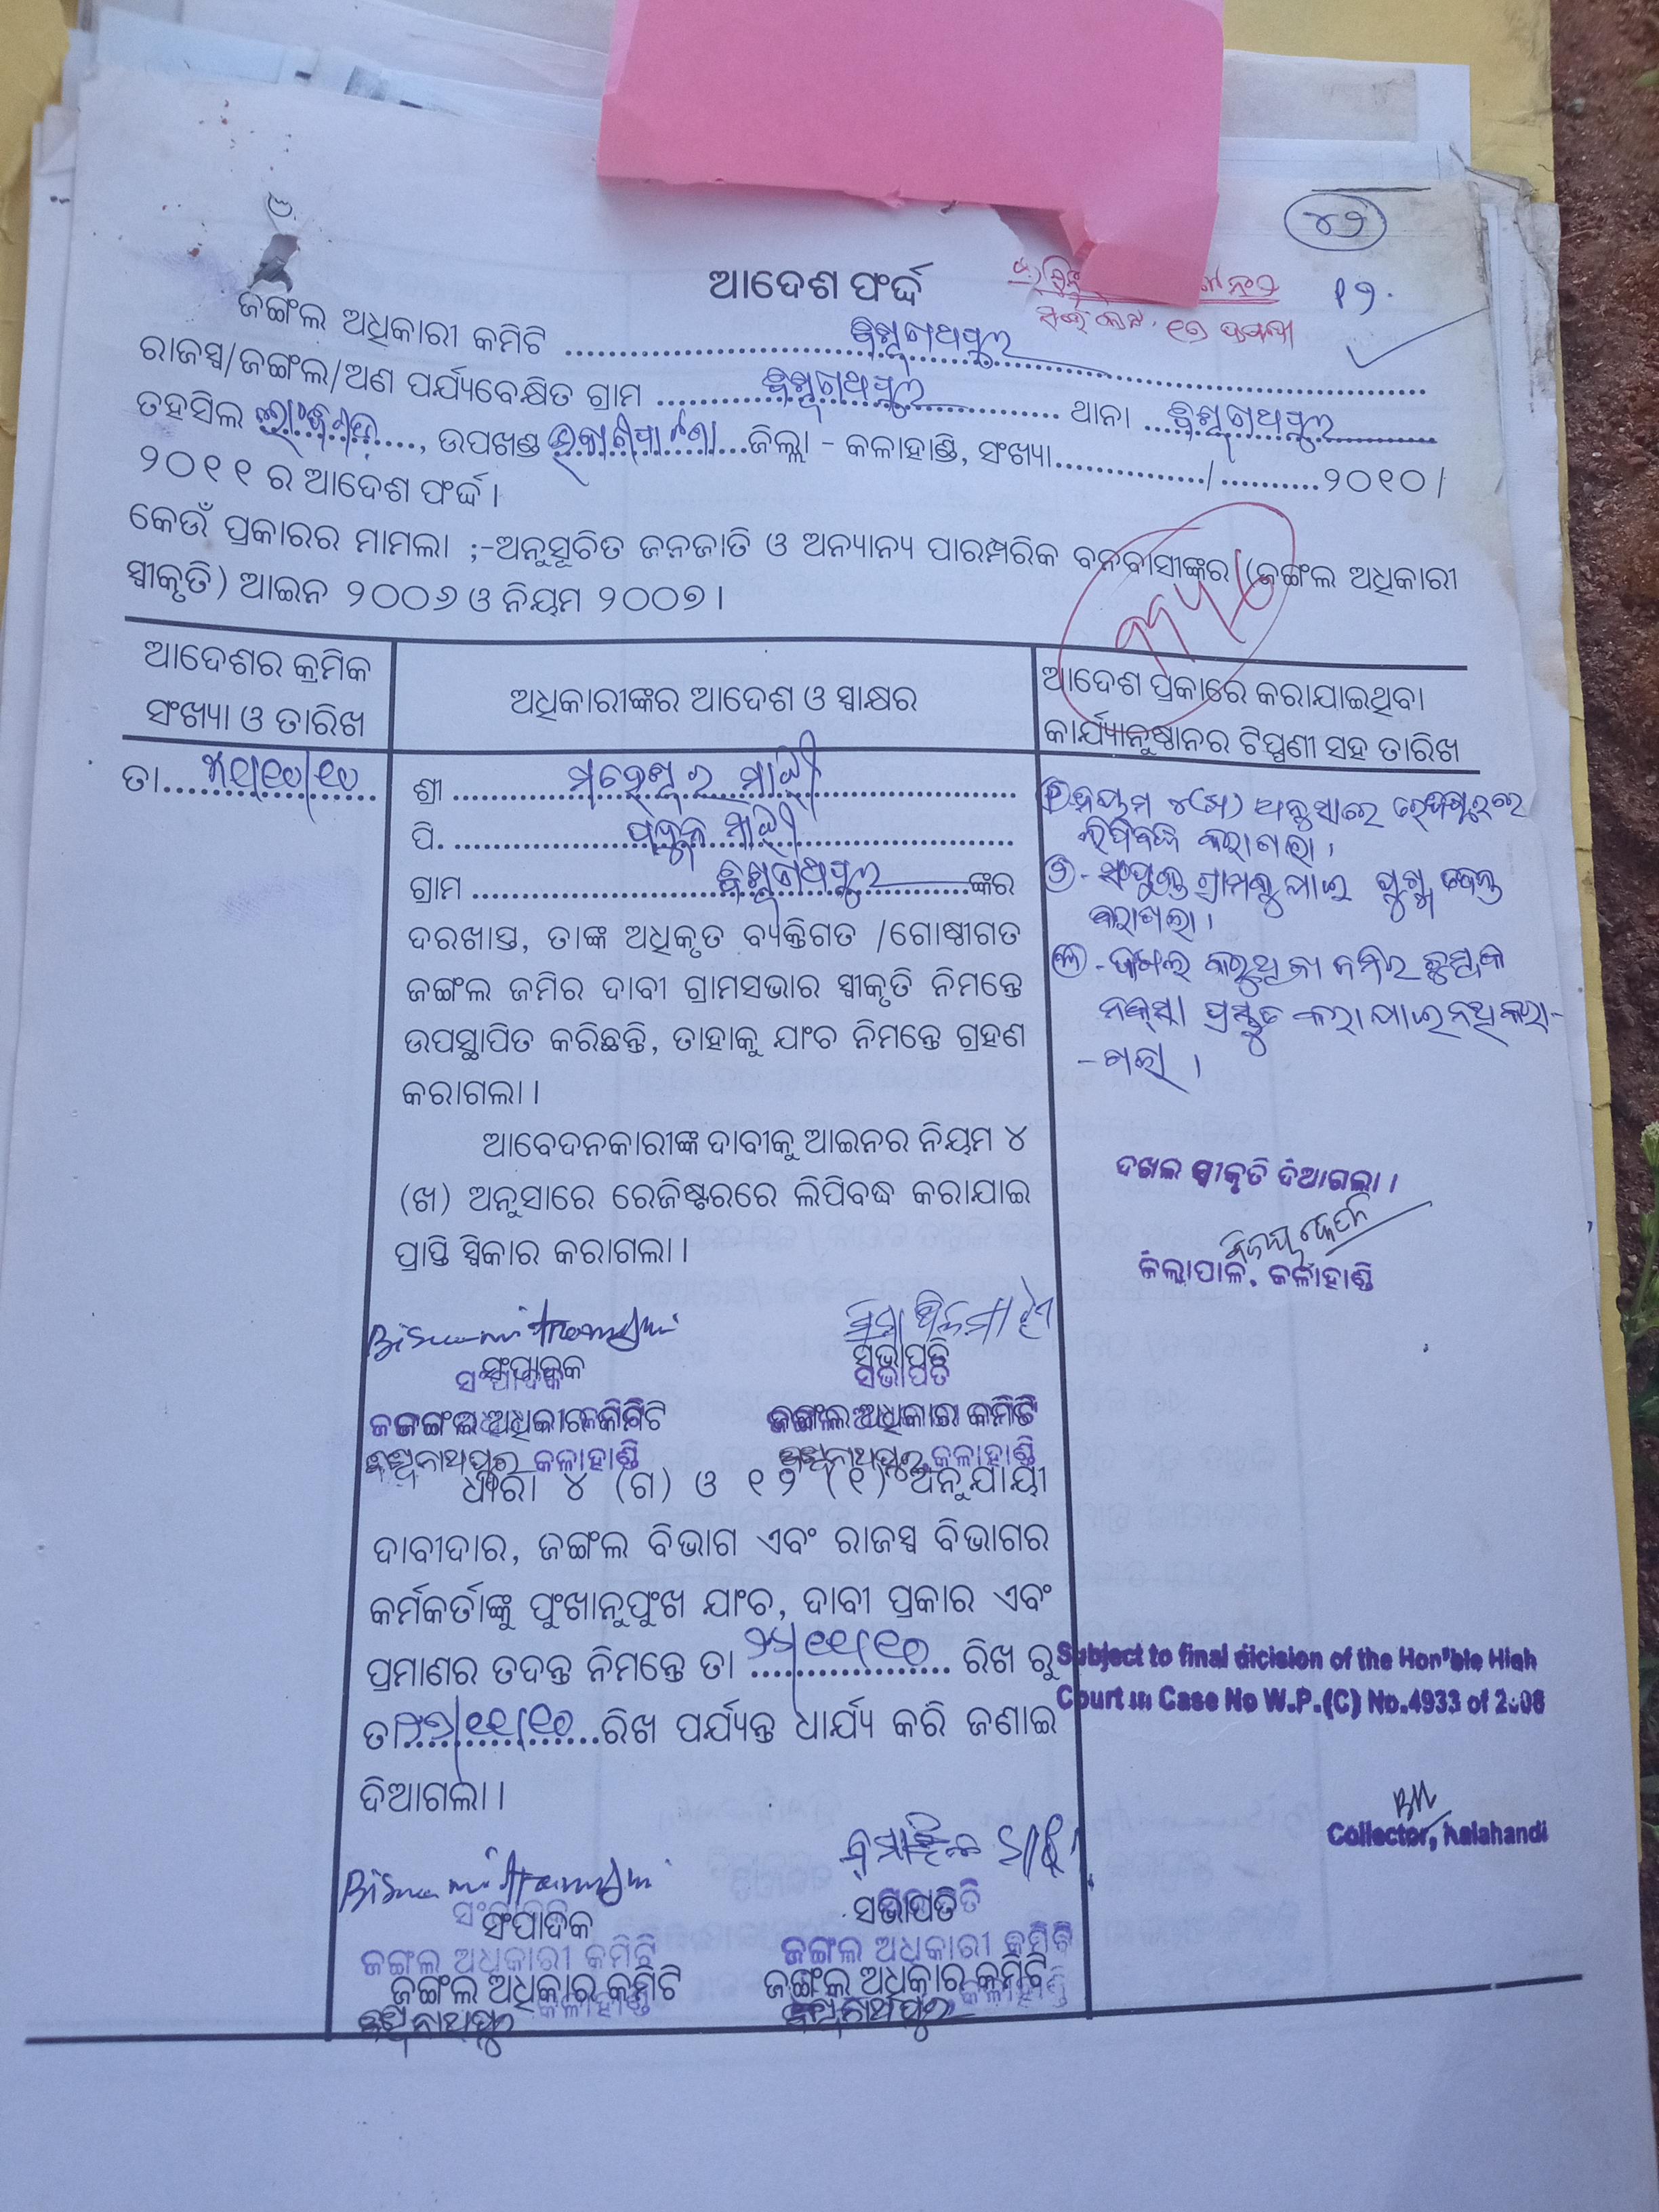 ୪୨
୧୨.
ଆଦେଶ ଫର୍ଦ୍ଦ
ଜଙ୍ଗଲ ଅଧିକାରୀ କମିଟି ........ ବିଶ୍ୱନାଥପୁର ........
ରାଜସ୍ୱ/ଜଙ୍ଗଲ/ଅଣ ପର୍ଯ୍ୟବେକ୍ଷିତ ଗ୍ରାମ ........ ବିଶ୍ୱନାଥପୁର ........ ଥାନା ........ ବିଶ୍ୱନାଥପୁର
ତହସିଲ ........, ଉପଖଣ୍ଡ ........ ଜିଲ୍ଲା - କଳାହାଣ୍ଡି, ସଂଖ୍ୟା............../..........୨୦୧୦/
୨୦୧୧ ର ଆଦେଶ ଫର୍ଦ୍ଦ।
କେଉଁ ପ୍ରକାରର ମାମଲା ;-ଅନୁସୂଚିତ ଜନଜାତି ଓ ଅନ୍ୟାନ୍ୟ ପାରମ୍ପରିକ ବନବାସୀଙ୍କର (ଜଙ୍ଗଲ ଅଧିକାରୀ
ସ୍ୱୀକୃତି) ଆଇନ ୨୦୦୬ ଓ ନିୟମ ୨୦୦୭।
ଆଦେଶର କ୍ରମିକ
ସଂଖ୍ୟା ଓ ତାରିଖ
ଅଧିକାରୀଙ୍କର ଆଦେଶ ଓ ସ୍ୱାକ୍ଷର
ଆଦେଶ ପ୍ରକାରେ କରାଯାଇଥିବା
କାର୍ଯ୍ୟାନୁଷ୍ଠାନର ଟିପ୍ପଣୀ ସହ ତାରିଖ
ତା........
ଶ୍ରୀ ........ ମହେଶ୍ୱର ମାଝୀ ........
ପି. ........ ମାଝୀ ........
ଗ୍ରାମ ........ ବିଶ୍ୱନାଥପୁର ........ଙ୍କର
ଦରଖାସ୍ତ, ତାଙ୍କ ଅଧିକୃତ ବ୍ୟକ୍ତିଗତ /ଗୋଷ୍ଠୀଗତ
ଜଙ୍ଗଲ ଜମିର ଦାବୀ ଗ୍ରାମସଭାର ସ୍ୱୀକୃତି ନିମନ୍ତେ
ଉପସ୍ଥାପିତ କରିଛନ୍ତି, ତାହାକୁ ଯାଂଚ ନିମନ୍ତେ ଗ୍ରହଣ
କରାଗଲା।
ଆବେଦନକାରୀଙ୍କ ଦାବୀକୁ ଆଇନର ନିୟମ ୪
(ଖ) ଅନୁସାରେ ରେଜିଷ୍ଟରରେ ଲିପିବଦ୍ଧ କରାଯାଇ
ପ୍ରାପ୍ତି ସ୍ୱିକାର କରାଗଲା।
ସଂପାଦକ
ଜଙ୍ଗଲ ଅଧିକାରୀ କମିଟି
ବିଶ୍ୱନାଥପୁର କଳାହାଣ୍ଡି
ସଭାପତି
ଜଙ୍ଗଲ ଅଧିକାରୀ କମିଟି
ବିଶ୍ୱନାଥପୁର, କଳାହାଣ୍ଡି
ଧାରା ୪ (ଗ) ଓ ୧୨ (୧) ଅନୁଯାୟୀ
ଦାବୀଦାର, ଜଙ୍ଗଲ ବିଭାଗ ଏବଂ ରାଜସ୍ୱ ବିଭାଗର
କର୍ମକର୍ତାଙ୍କୁ ପୁଂଖାନୁପୁଂଖ ଯାଂଚ, ଦାବୀ ପ୍ରକାର ଏବଂ
ପ୍ରମାଣର ତଦନ୍ତ ନିମନ୍ତେ ତା ........ ରିଖ ରୁ
ତା........ରିଖ ପର୍ଯ୍ୟନ୍ତ ଧାର୍ଯ୍ୟ କରି ଜଣାଇ
ଦିଆଗଲା।
ସଂପାଦକ
ଜଙ୍ଗଲ ଅଧିକାରୀ କମିଟି
ଜଙ୍ଗଲ ଅଧିକାର କମିଟି
ବିଶ୍ୱନାଥପୁର କଳାହାଣ୍ଡି
ସଭାପତି
ଜଙ୍ଗଲ ଅଧିକାରୀ କମିଟି
ଜଙ୍ଗଲ ଅଧିକାର କମିଟି
ବିଶ୍ୱନାଥପୁର କଳାହାଣ୍ଡି
୧-ନିୟମ ୪(ଖ) ଅନୁସାରେ ରେଜିଷ୍ଟରରେ
ଲିପିବଦ୍ଧ କରାଗଲା।
୨- ସଂପୃକ୍ତ ଗ୍ରାମକୁ ଯାଇ ତଦନ୍ତ
କରାଗଲା।
୩- ଦଖଲ କରୁଥିବା ଜମିର
ନକ୍ସା ପ୍ରସ୍ତୁତ କରାଯାଇ ନଥି କରା-
-ଗଲା।
ଦଖଲ ସ୍ୱୀକୃତି ଦିଆଗଲା।
ଜିଲ୍ଲାପାଳ, କଳାହାଣ୍ଡି
Subject to final dicision of the Hon'ble High
Court in Case No W.P.(C) No.4933 of 2008
Collector, Kalahandi